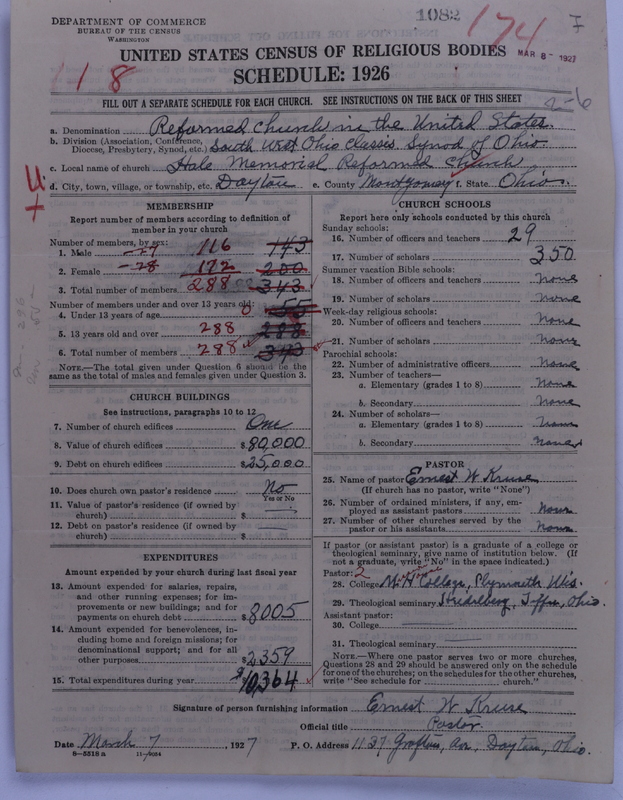 DEPARTMENT OF COMMERCE
BUREAU OF THE CENSUS
WASHINGTON
1082
174
7
MAR 8 - 1927
118
UNITED STATES CENSUS OF RELIGIOUS BODIES
SCHEDULE: 1926
FILL OUT A SEPARATE SCHEDULE FOR EACH CHURCH. SEE INSTRUCTIONS ON THE BACK OF THIS SHEET
2-6
a. Denomination Reformed Church in the United States.
b. Division (Association, Conference, Diocese, Presbytery, Synod, etc.) South West Ohio Classis Synod of Ohio
c. Local name of church Hale Memorial Reformed Church
d. City, town, village, or township, etc. Dayton e. County Montgomery f. State Ohio.
MEMBERSHIP
Report number of members according to definition of
member in your church
Number of members, by sex:
1. Male -27 116 143
2. Female -28 172 200
3. Total number of members 288 343
Number of members under and over 13 years old:
4. Under 13 years of age 0 55
5. 13 years old and over 288 288
6. Total number of members 288 343
NOTE.—The total given under Question 6 should be the
same as the total of males and females given under Question 3.
CHURCH BUILDINGS
See instructions, paragraphs 10 to 12
7. Number of church edifices One
8. Value of church edifices $80,000
9. Debt on church edifices $25,000
10. Does church own pastor's residence No
Yes or No
11. Value of pastor's residence (if owned by
church) $
12. Debt on pastor's residence (if owned by
church) $
EXPENDITURES
Amount expended by your church during last fiscal year
13. Amount expended for salaries, repairs,
and other running expenses; for im-
provements or new buildings; and for
payments on church debt $8005
14. Amount expended for benevolences, in-
cluding home and foreign missions; for
denominational support; and for all
other purposes $2359
15. Total expenditures during year $10,364
CHURCH SCHOOLS
Report here only schools conducted by this church
Sunday schools:
16. Number of officers and teachers 29
17. Number of scholars 350
Summer vacation Bible schools:
18. Number of officers and teachers None
19. Number of scholars None
Week-day religious schools:
20. Number of officers and teachers None
21. Number of scholars None
Parochial schools:
22. Number of administrative officers None
23. Number of teachers—
a. Elementary (grades 1 to 8) None
b. Secondary None
24. Number of scholars—
a. Elementary (grades 1 to 8) None
b. Secondary None
PASTOR
25. Name of pastor Ernest W Kruse
(If church has no pastor, write "None")
26. Number of ordained ministers, if any, em-
ployed as assistant pastors None
27. Number of other churches served by the
pastor or his assistants None
If pastor (or assistant pastor) is a graduate of a college or
theological seminary, give name of institution below. (If
not a graduate, write "No" in the space indicated.)
Pastor: 2
28. College M. H. College, Plymouth Wis.
29. Theological seminary Heidelberg, Tiffin, Ohio.
Assistant pastor:
30. College
31. Theological seminary
NOTE.—Where one pastor serves two or more churches,
Questions 28 and 29 should be answered only on the schedule
for one of the churches; on the schedules for the other churches,
write "See schedule for church."
Signature of person furnishing information Ernest W Kruse
Official title Pastor
Date March 7, 1927 P. O. Address 1137 Grafton Ave, Dayton, Ohio.
8—5518 a